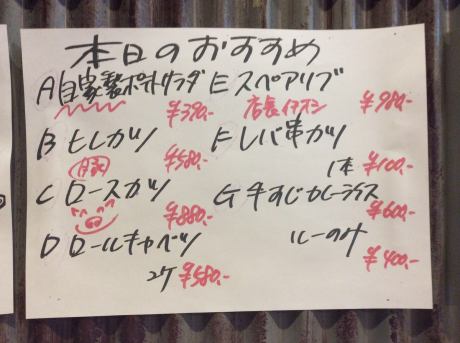 本日のおすすめ
A自家製ポテトサラダ
¥390,-
Bヒレカツ
豚
¥580,-
Cロースカツ
¥880,-
Dロールキャベツ
2ケ ¥580,-
Eスペアリブ
店長イチオシ ¥980,-
Fレバ串カツ
1本 ¥100,-
G牛すじカレーライス
¥600,-
ルーのみ
¥400,-